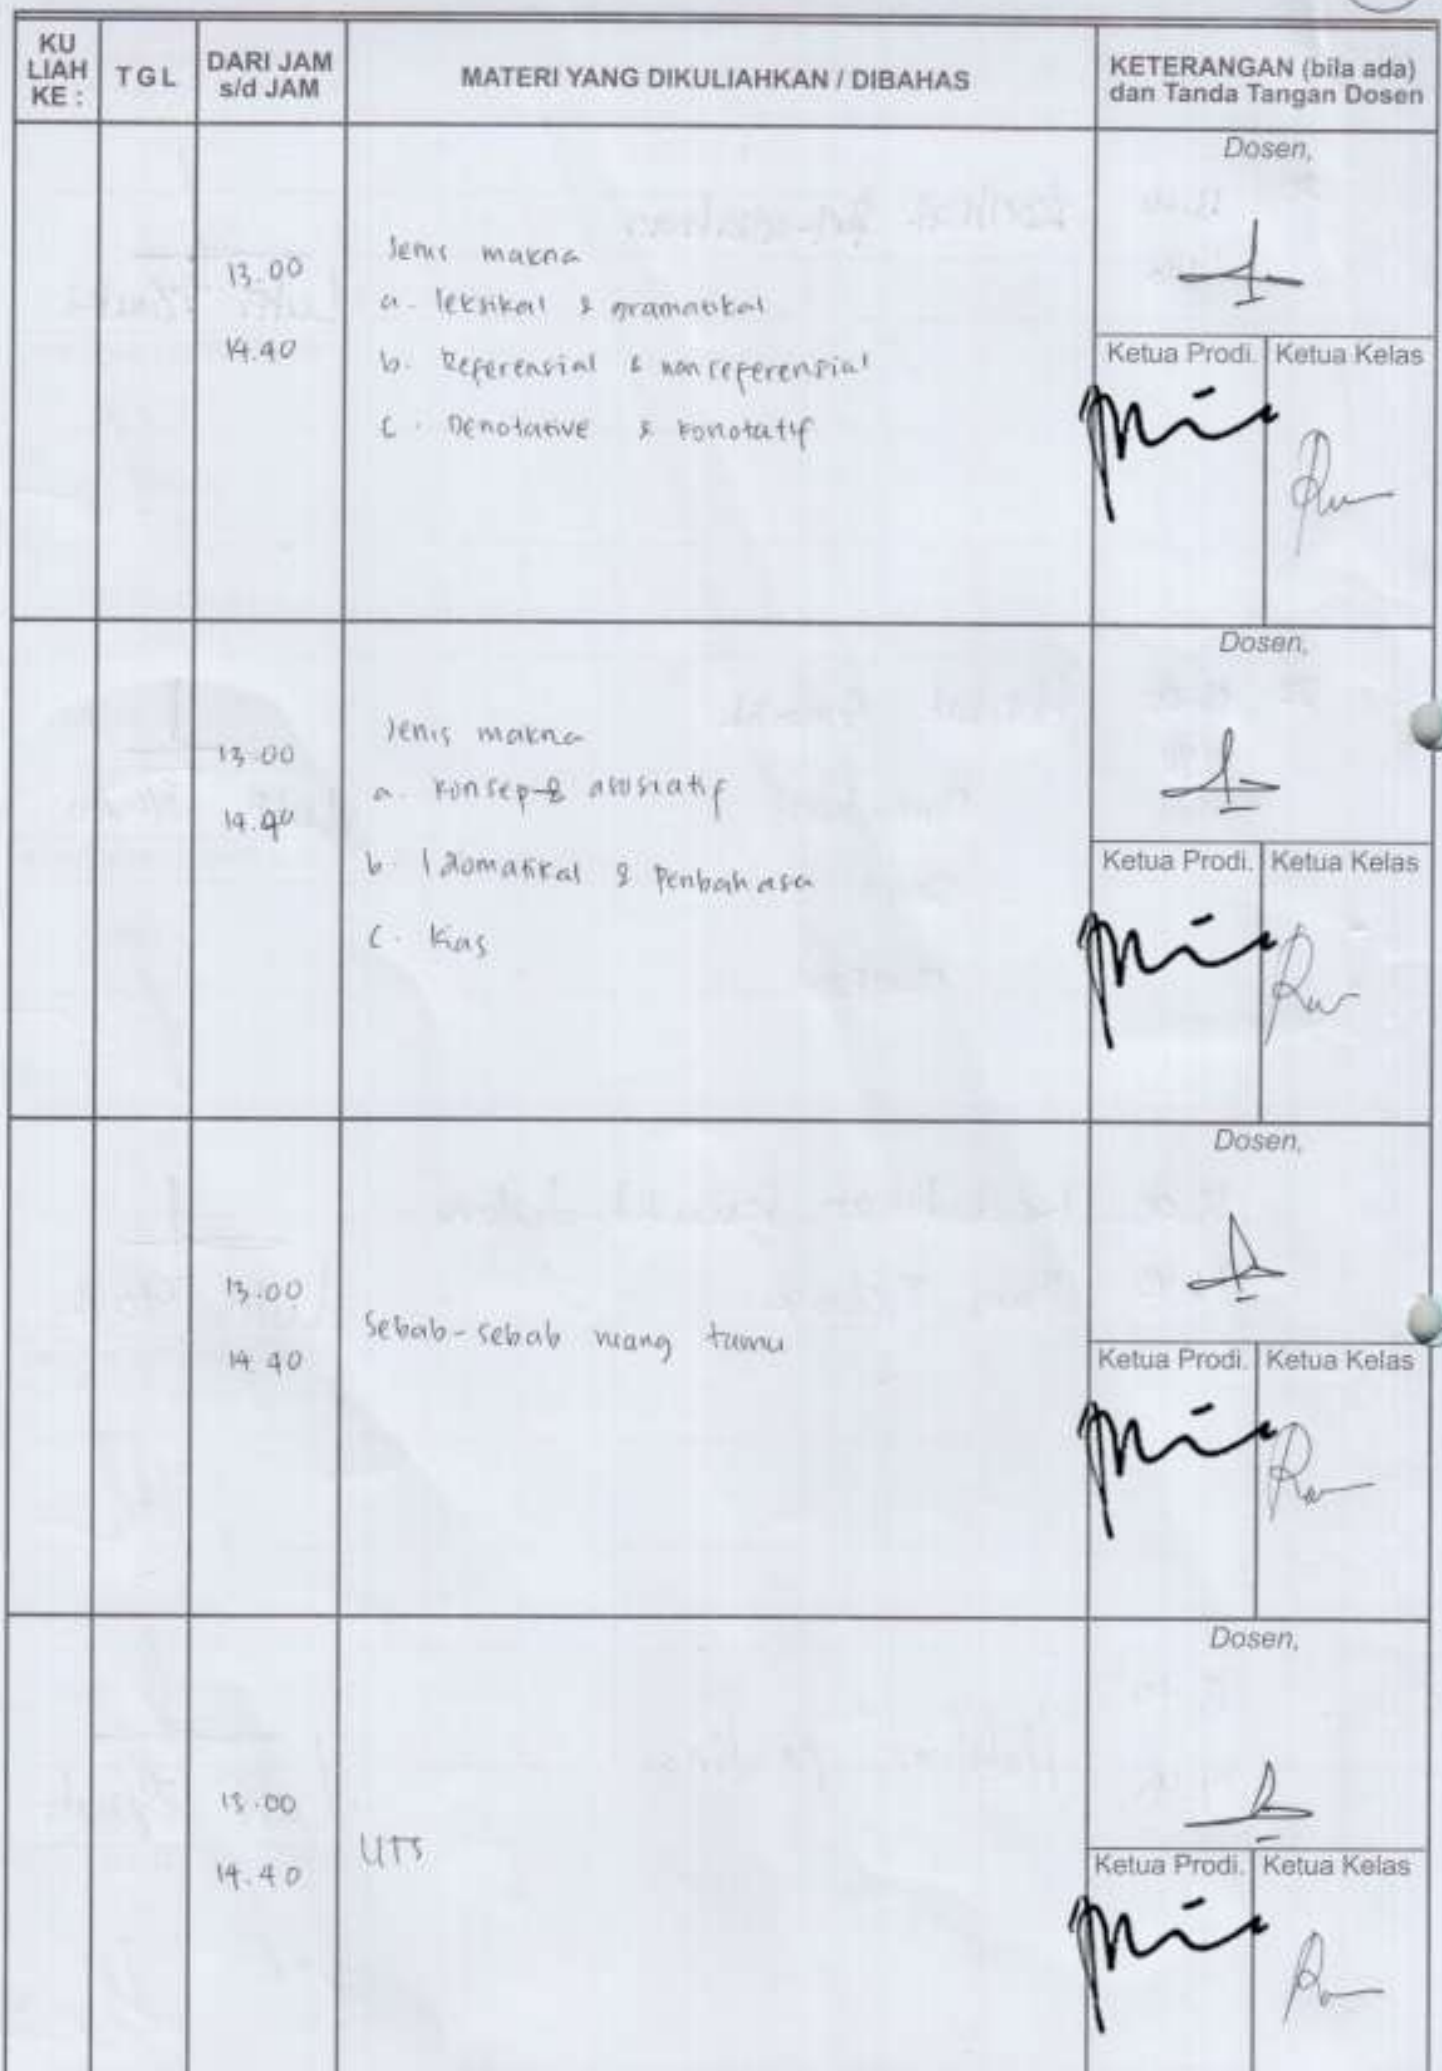 KU LIAH KE :
TGL
DARI JAM s/d JAM
MATERI YANG DIKULIAHKAN / DIBAHAS
KETERANGAN (bila ada) dan Tanda Tangan Dosen
Dosen,
13.00
14.40
Jenis makna
a. leksikal & gramatikal
b. Referensial & nonreferensial
c. Denotative & konotatif
Ketua Prodi.
Ketua Kelas
Dosen,
13.00
14.40
Jenis makna
a. konsep & asosiatif
b. Idomatikal & Peribahasa
c. Kias
Ketua Prodi.
Ketua Kelas
Dosen,
13.00
14.40
Sebab-sebab
Ketua Prodi.
Ketua Kelas
Dosen,
13.00
14.40
UTS
Ketua Prodi.
Ketua Kelas